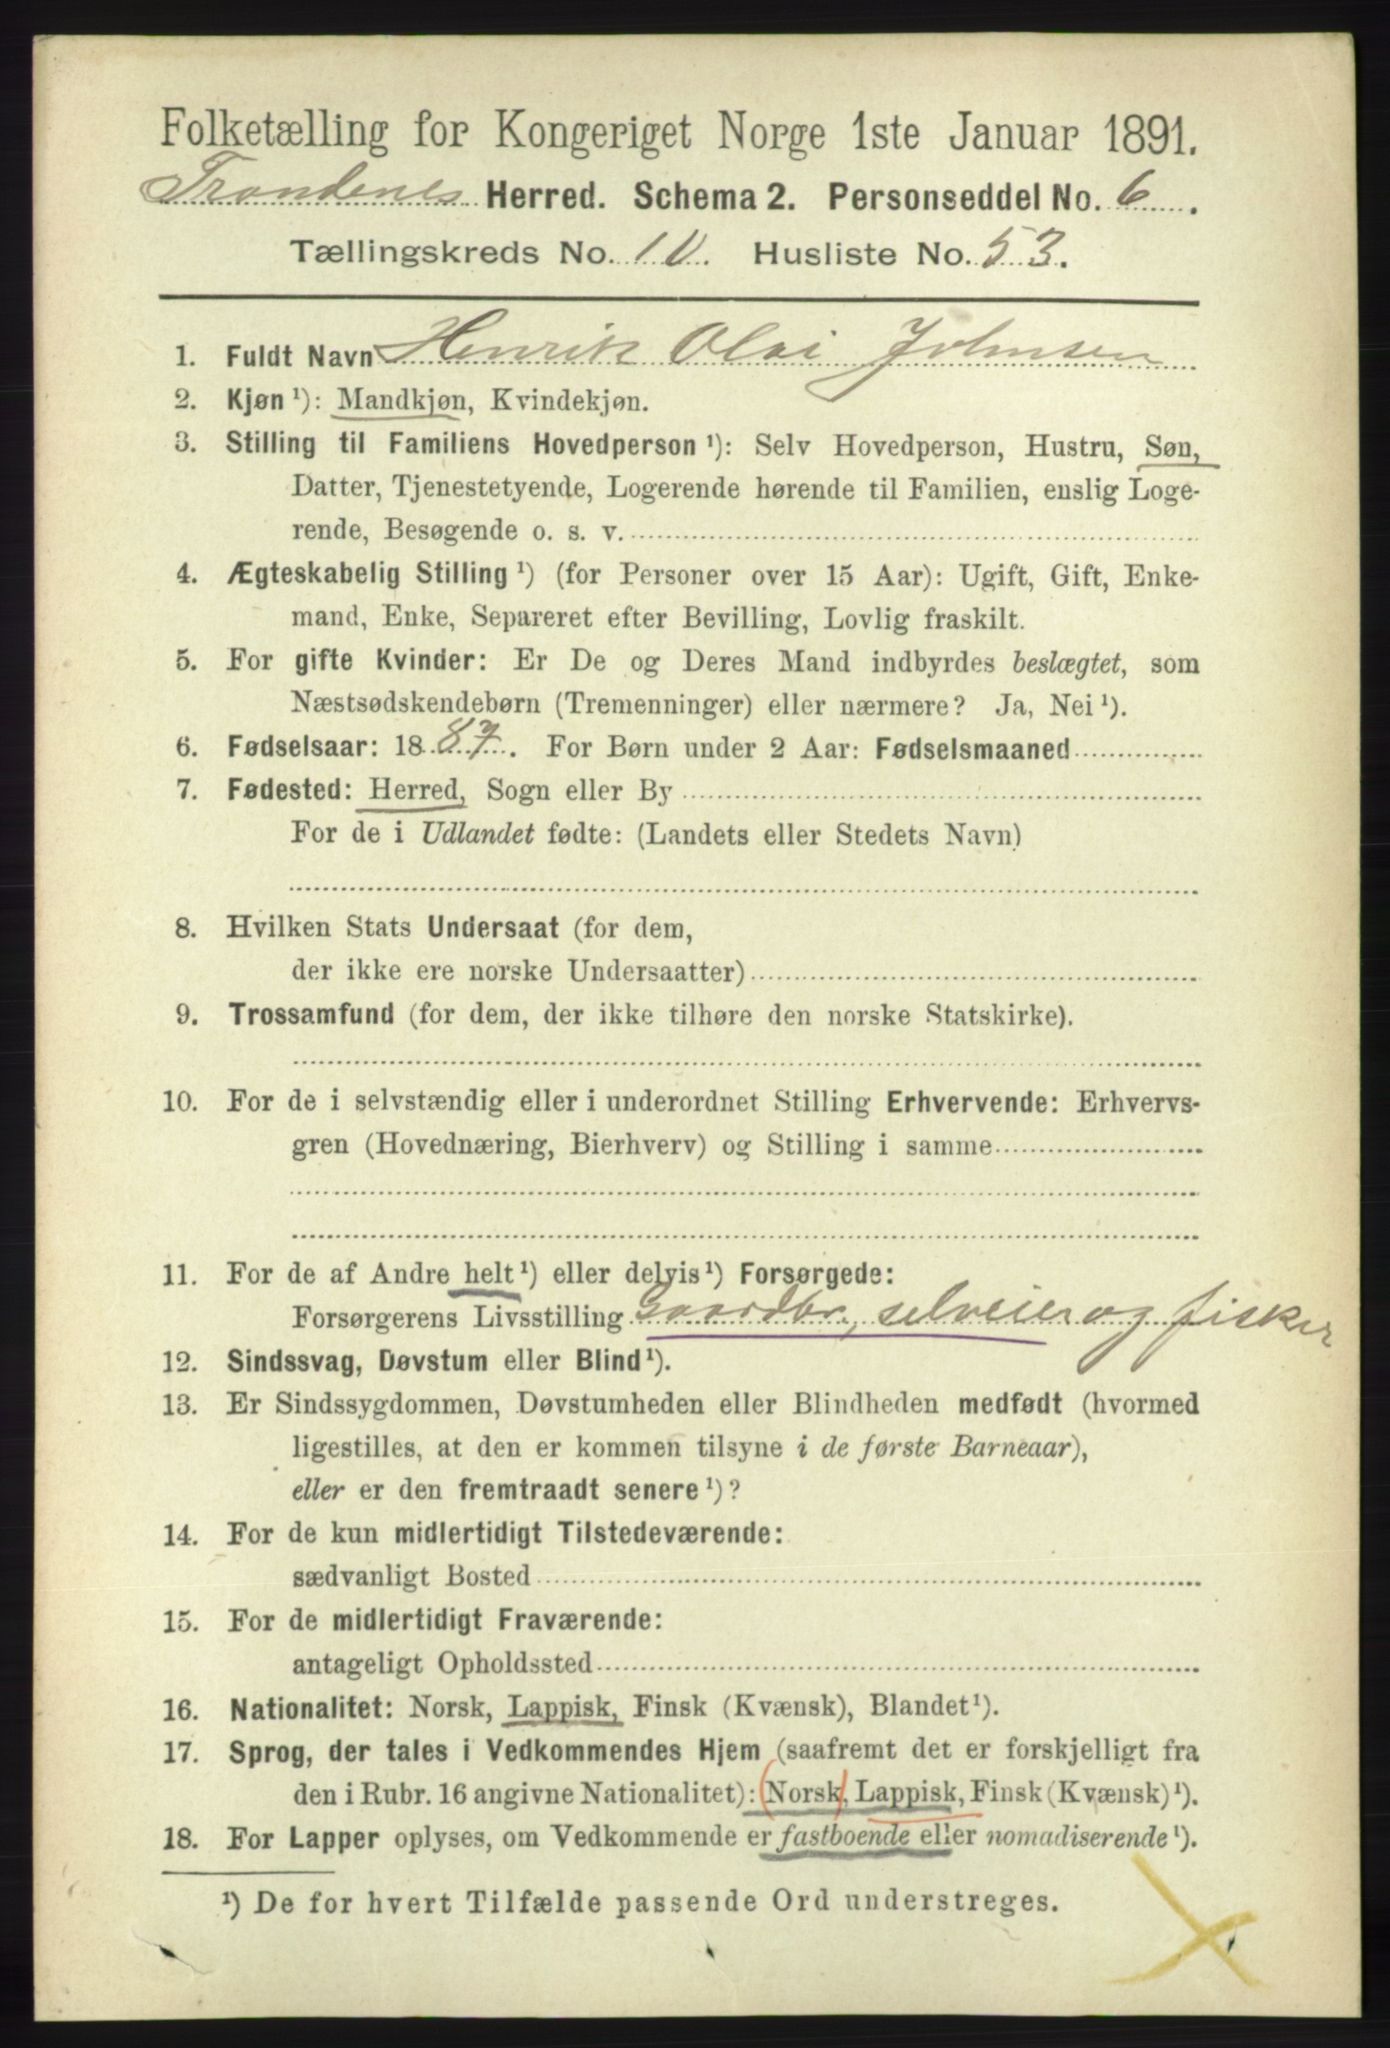 Folketælling for Kongeriget Norge 1ste Januar 1891.
Trondenes Herred. Schema 2. Personseddel No. 6.
Tællingskreds No. 10. Husliste No. 53.
1. Fuldt Navn Henrik Olai Johnsen
2. Kjøn ¹): Mandkjøn, Kvindekjøn.
3. Stilling til Familiens Hovedperson ¹): Selv Hovedperson, Hustru, Søn,
Datter, Tjenestetyende, Logerende hørende til Familien, enslig Loge-
rende, Besøgende o. s. v.
4. Ægteskabelig Stilling ¹) (for Personer over 15 Aar): Ugift, Gift, Enke-
mand, Enke, Separeret efter Bevilling, Lovlig fraskilt.
5. For gifte Kvinder: Er De og Deres Mand indbyrdes beslægtet, som
Næstsødskendebørn (Tremenninger) eller nærmere? Ja, Nei ¹).
6. Fødselsaar: 1887. For Børn under 2 Aar: Fødselsmaaned
7. Fødested: Herred, Sogn eller By
For de i Udlandet fødte: (Landets eller Stedets Navn)
8. Hvilken Stats Undersaat (for dem,
der ikke ere norske Undersaatter)
9. Trossamfund (for dem, der ikke tilhøre den norske Statskirke).
10. For de i selvstændig eller i underordnet Stilling Erhvervende: Erhvervs-
gren (Hovednæring, Bierhverv) og Stilling i samme
11. For de af Andre helt ¹) eller delvis ¹) Forsørgede:
Forsørgerens Livsstilling Gaardbr, selveier og fisker
12. Sindssvag, Døvstum eller Blind ¹).
13. Er Sindssygdommen, Døvstumheden eller Blindheden medfødt (hvormed
ligestilles, at den er kommen tilsyne i de første Barneaar),
eller er den fremtraadt senere ¹)?
14. For de kun midlertidigt Tilstedeværende:
sædvanligt Bosted
15. For de midlertidigt Fraværende:
antageligt Opholdssted
16. Nationalitet: Norsk, Lappisk, Finsk (Kvænsk), Blandet ¹).
17. Sprog, der tales i Vedkommendes Hjem (saafremt det er forskjelligt fra
den i Rubr. 16 angivne Nationalitet): (Norsk), Lappisk, Finsk (Kvænsk) ¹).
18. For Lapper oplyses, om Vedkommende er fastboende eller nomadiserende ¹).
¹) De for hvert Tilfælde passende Ord understreges.